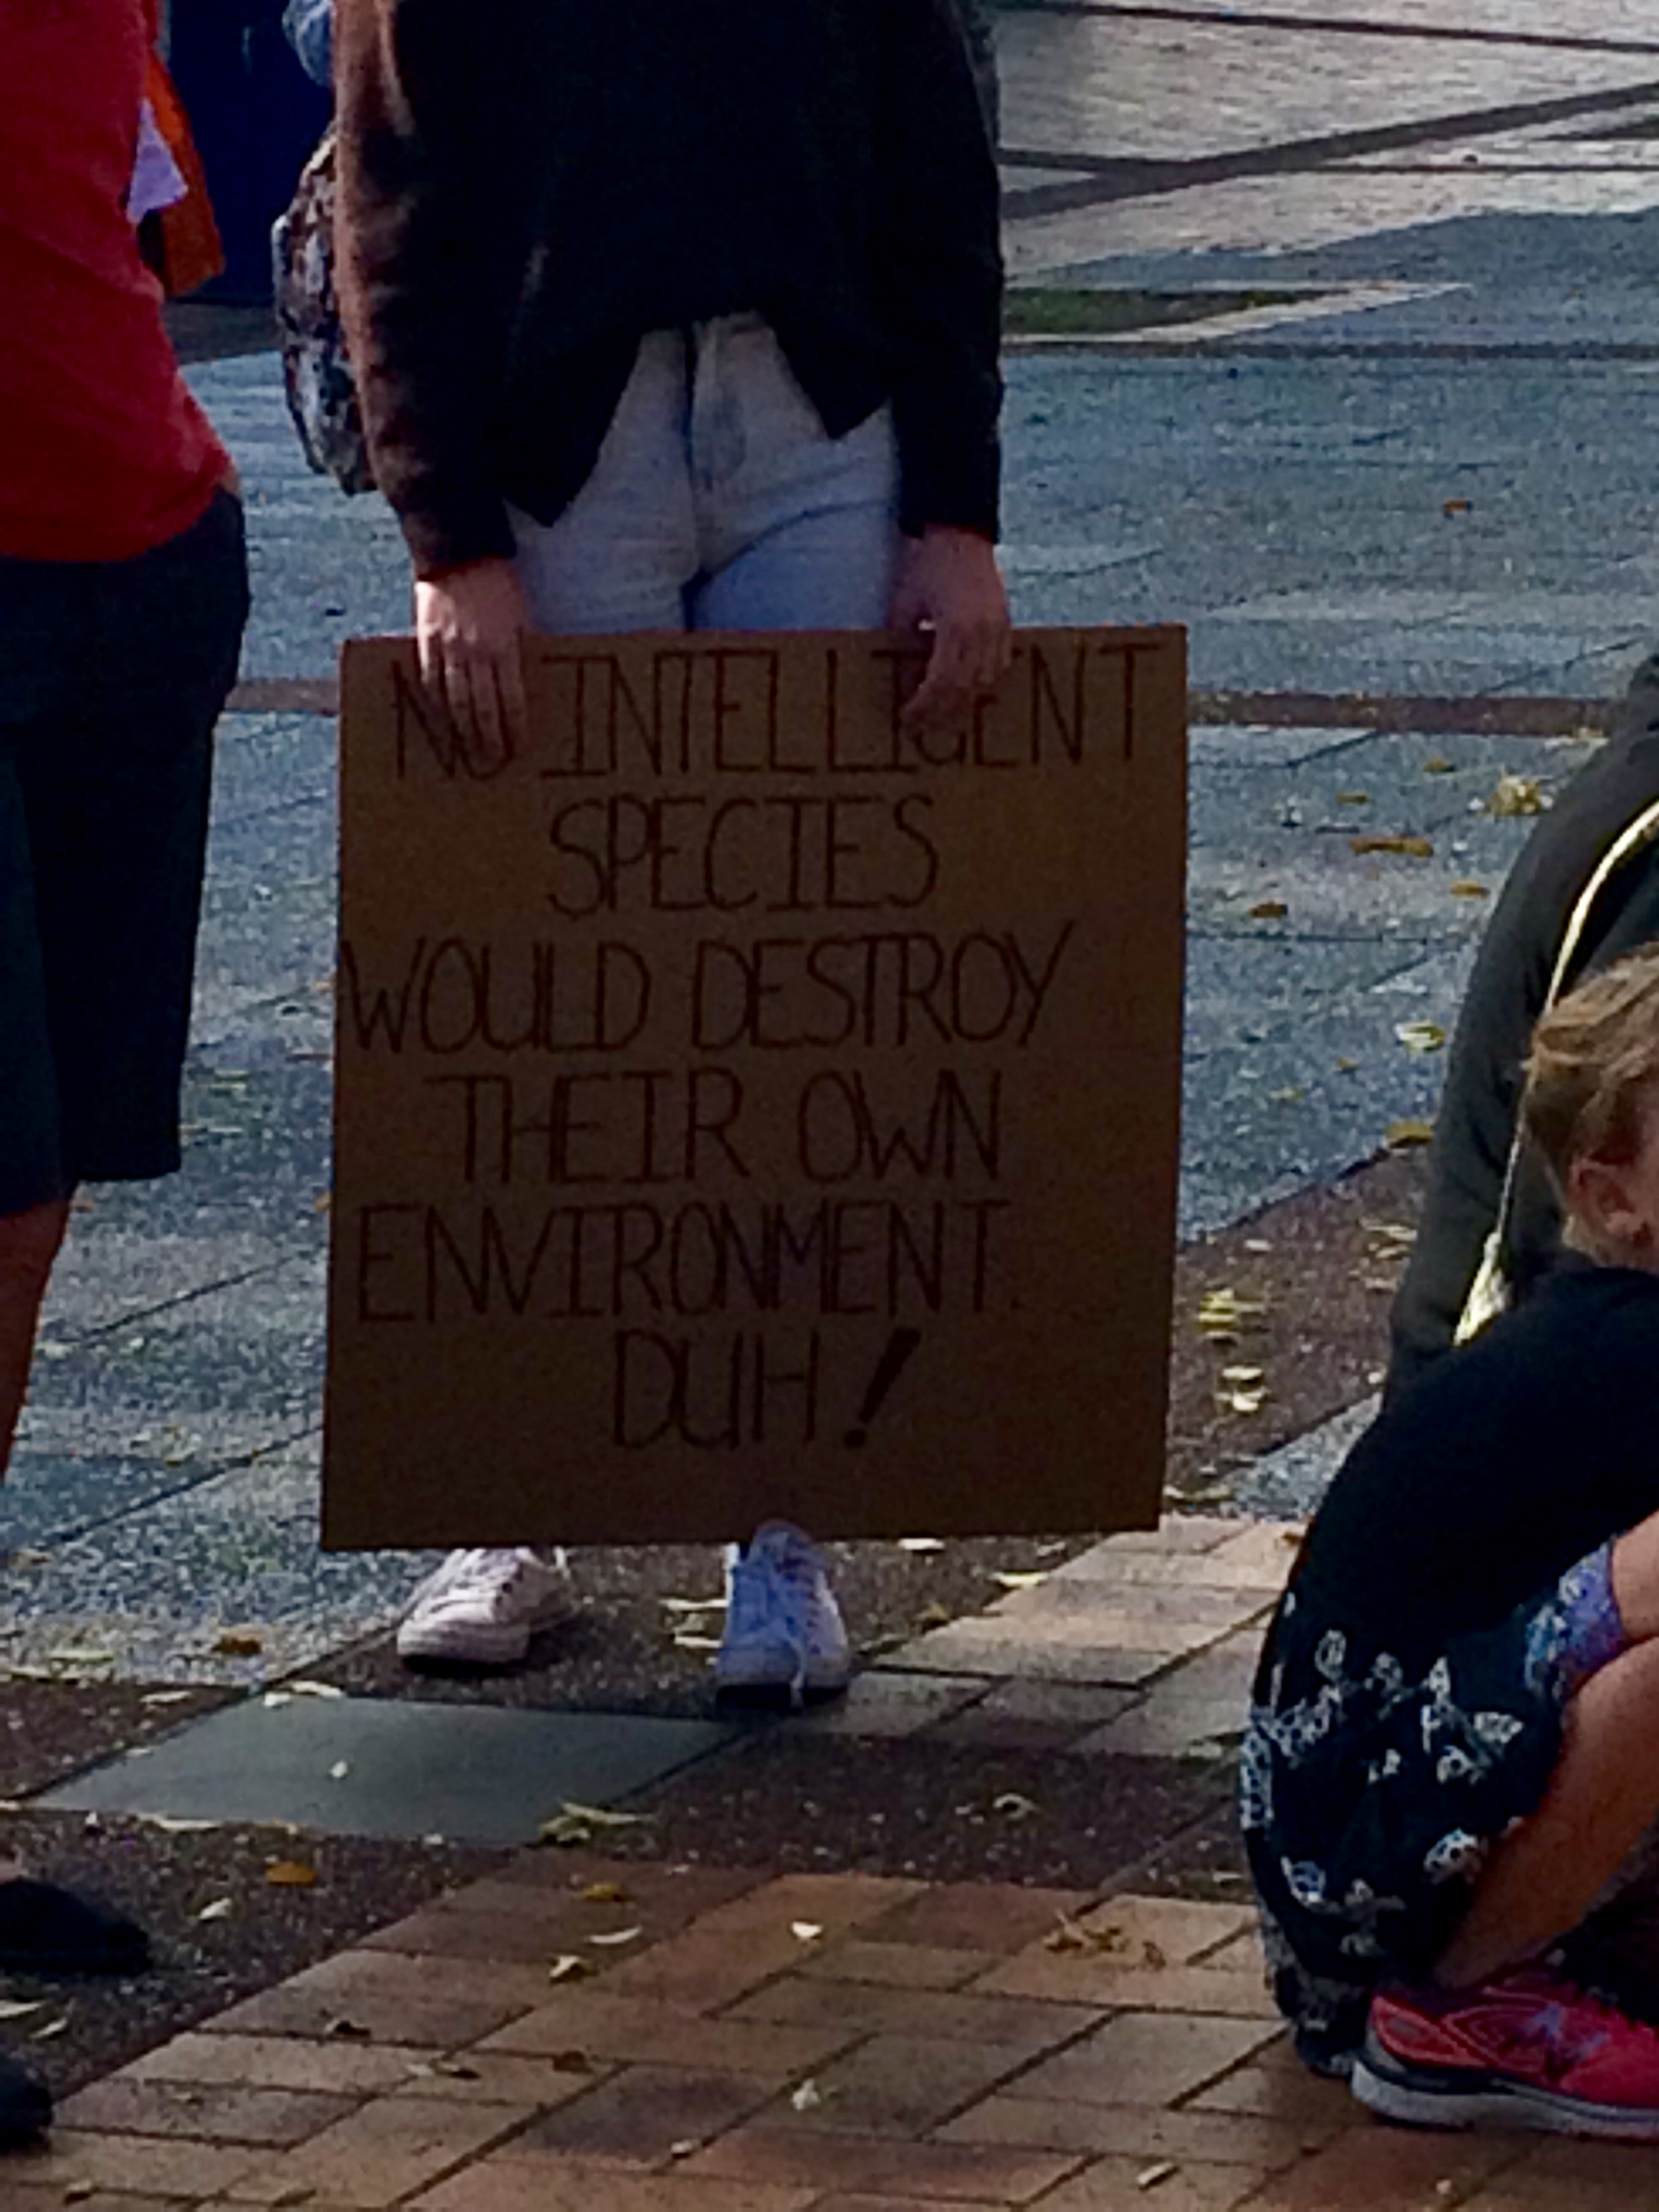 NO INTELLIGENT
SPECIES
WOULD DESTROY
THEIR OWN
ENVIRONMENT.
DUH!